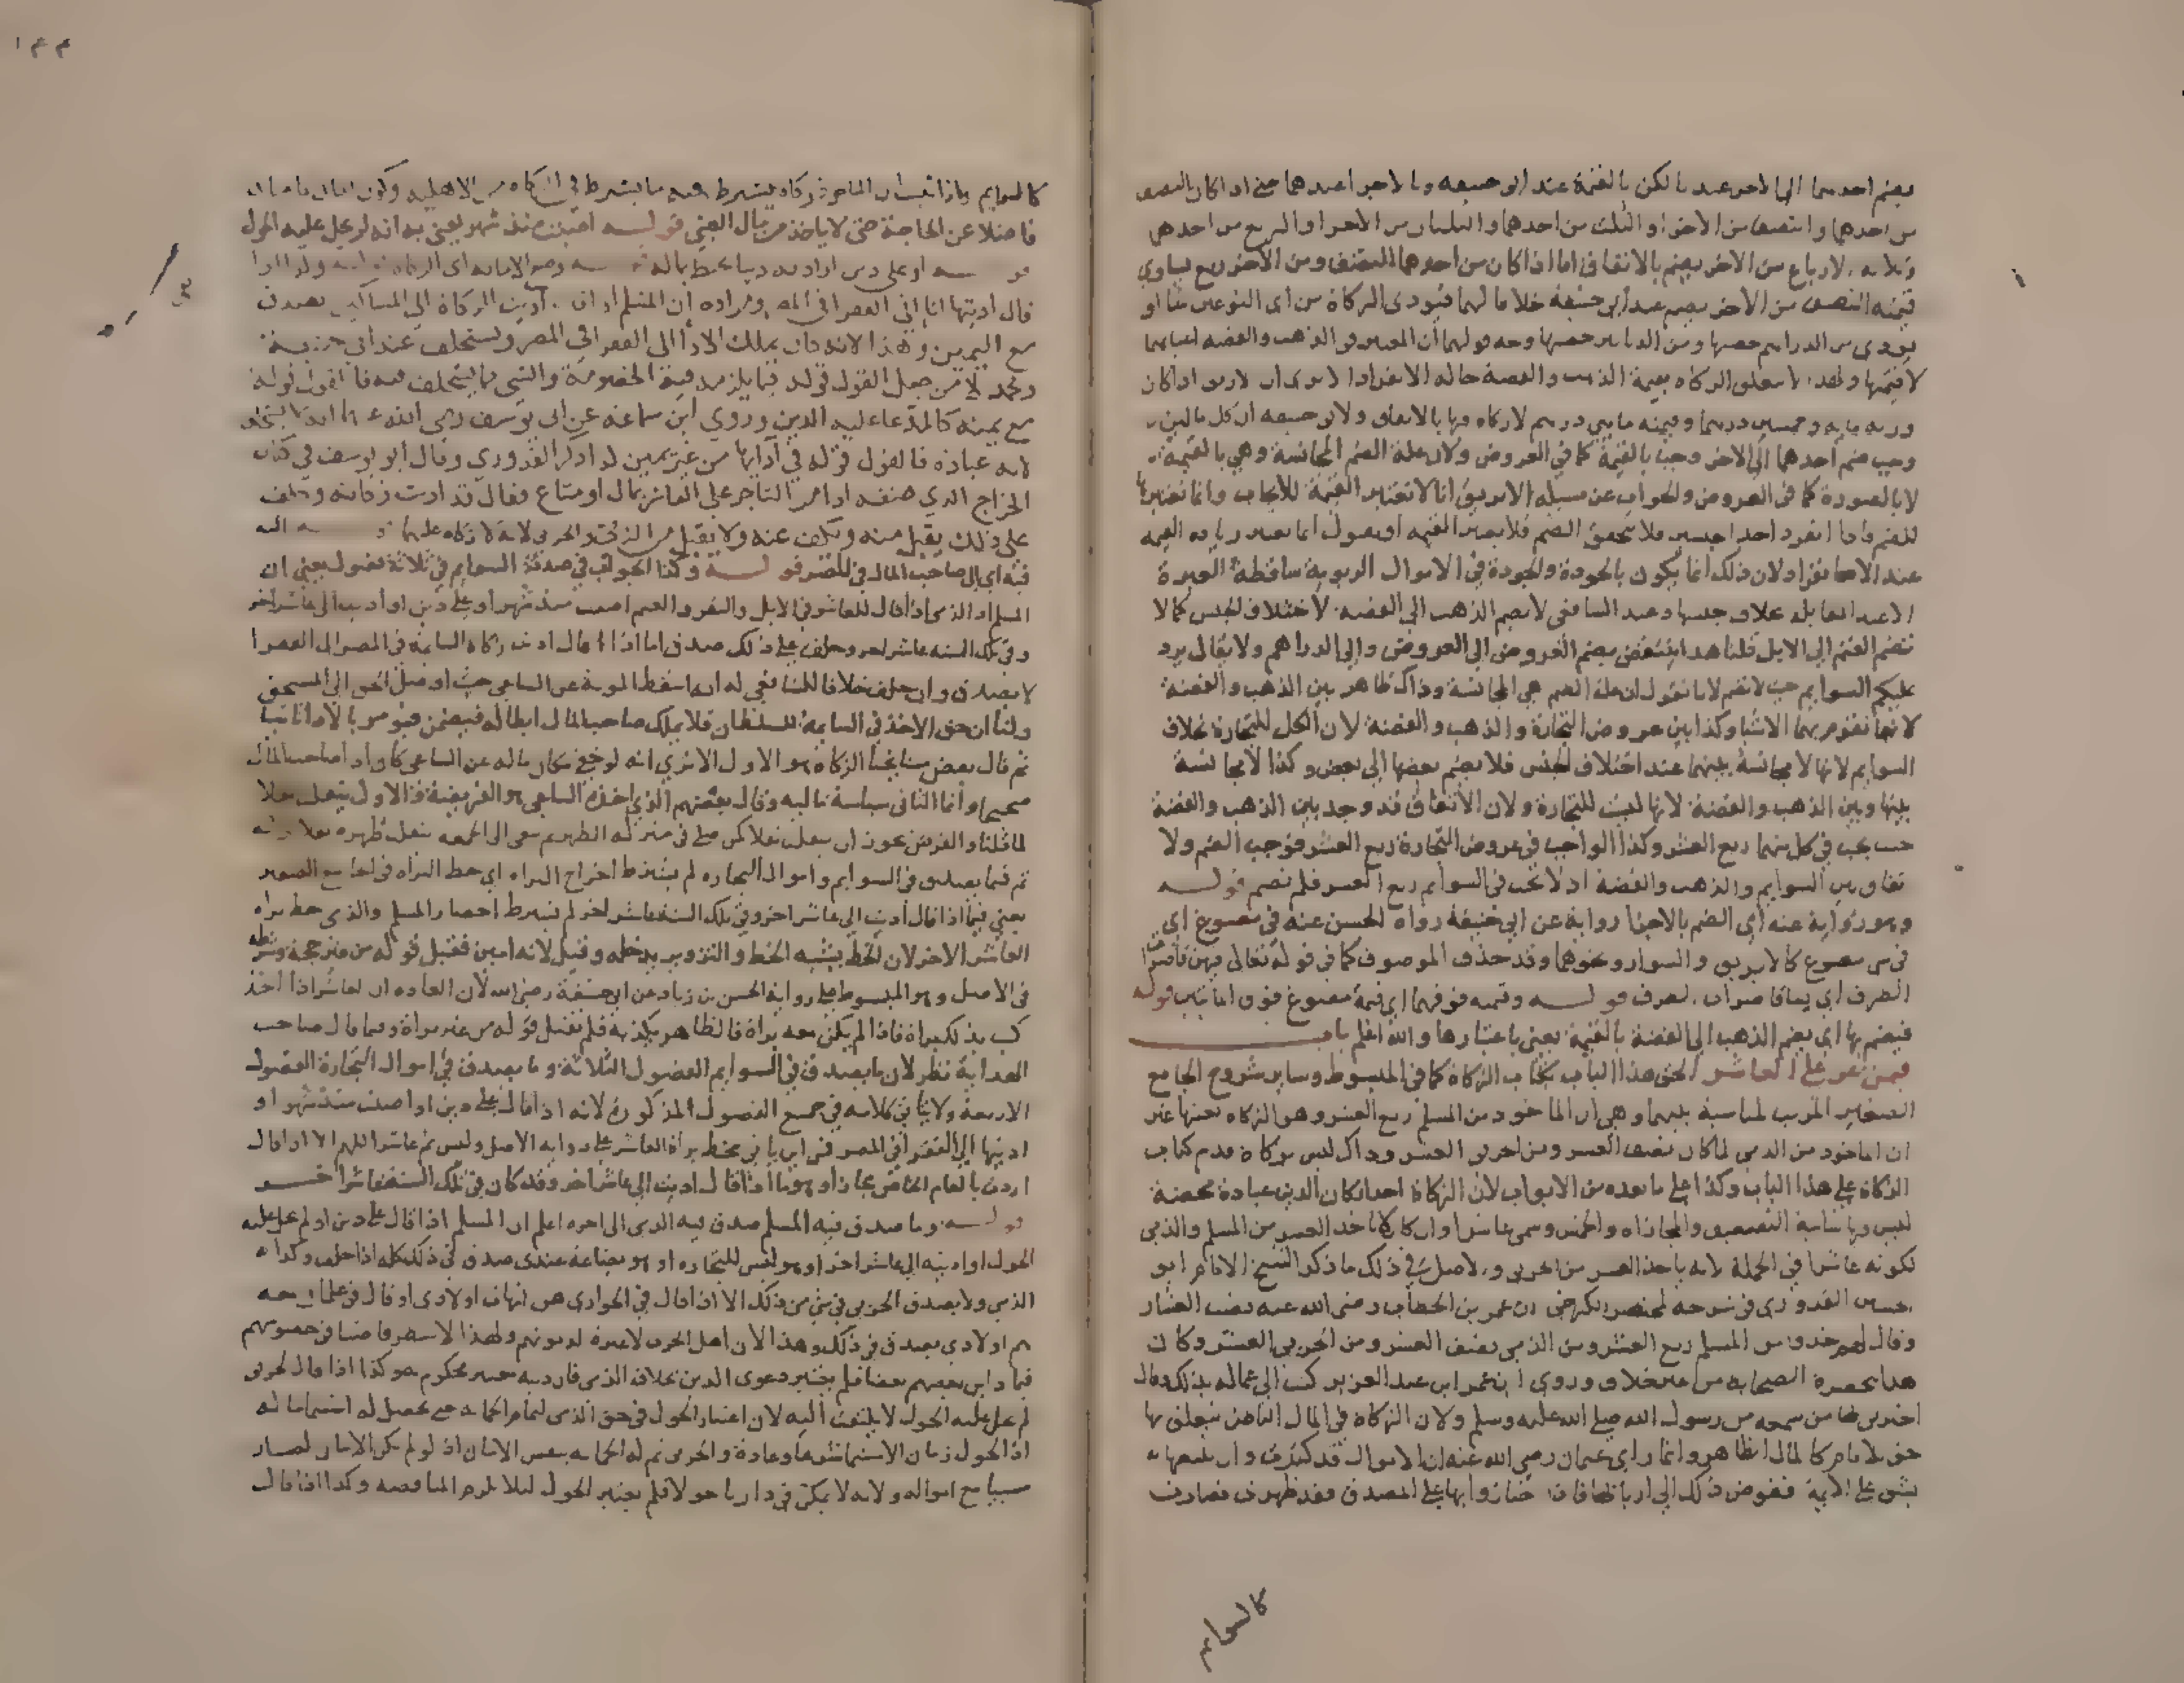 يضم احدهما الى الاخر عندنا لكن بالقيمة عند ابي حنيفه وبالاجزا عندهما حتى اذا كان النصف
من احدهما والنصف من الاخر او الثلث من احدهما والثلثان من الاخر او الربع من احدهما
وثلاثة الارباع من الاخر يضم بالاتفاق اما اذا كان من احدهما النصف ومن الاخر ربع يساوي
قيمته النصف من الاخر يضم عند ابي حنيفة خلافا لهما فيودى الزكاة من اى النوعين شا او
يودى من الدراهم حصتها ومن الدنانير حصتها وجه قولهما ان المعتبر فى الذهب والفضه اعيانهما
لا قيمتها ولهذا لا يتعلق الزكاه بقيمة الذهب والفضة حالة الانفراد الا يرى ان الابريق اذا كان
وزنه مايه وخمسين درهما وقيمته مايتي درهم لا زكاه فيها بالاتفاق ولابي حنيفه ان كل مالين
وجب ضم احدهما الى الاخر وجب بالقيمة كما في العروض ولان علة الضم المجانسة وهي بالقيمة
لا بالصورة كما فى العروض والجواب عن مسيلة الابريق انا لا نعتبر القيمة للايجاب وانما نعتبرها
للضم فاذا انفرد احد الجنسين فلا يتحقق الضم فلا يعتبر القيمه او نقول انما تعتبر زيادة القيمه
عند الانفراد لان ذلك انما يكون بالجودة والجودة في الاموال الربوية ساقطة العبرة
الا عند المقابلة بخلاف جنسها وعند الشافعى لا يضم الذهب الى الفضه لاختلاف الجنس كما لا
تضم الغنم الى الابل قلنا هذا ينتقض بضم العروض الى العروض والى الدراهم ولا يقال يرد
عليكم السوايم حيث لا تضم لانا نقول ان علة الضم هي المجانسة وذاك ظاهر بين الذهب والفضة
لانها تقوم بهما الاشيا وكذا بين عروض التجارة والذهب والفضة لان الكل للتجارة بخلاف
السوايم لانها لا مجانسة بينهما عند اختلاف الجنس فلا يضم بعضها الى بعض وكذا لا مجانسة
بينها وبين الذهب والفضة لانها ليست للتجارة ولان الاتفاق قد وجد بين الذهب والفضة
حيث يجب في كل منهما ربع العشر وكذا الواجب في عروض التجارة ربع العشر فوجب الضم ولا
اتفاق بين السوايم والذهب والفضة اذ لا يجب فى السوايم ربع العشر فلم تضم قولـــه
وهو رواية عنه اي الضم بالاجزا رواية عن ابي حنيفة رواه الحسن عنه في مصوغ اي
فى شى مصوغ كالابريق والسوار ونحوهما وقد حذف الموصوف كما فى قوله تعالى فيهن قاصرات
الطرف اي نسا قاصرات الطرف قولـــه وقيمته فوقهما اى قيمة مصوغ فوق المايتين قوله
فيضم بها اي يضم الذهب الى الفضة بالقيمة يعنى باعتبارها والله اعلم باب
فيمن يمر على العاشر الحق هذا الباب بكتاب الزكاة كما في المبسوط وساير شروح الجامع
الصغير المرتب لمناسبة بينهما وهي ان الماخوذ من المسلم ربع العشر وهو الزكاه بعينها غير
ان الماخوذ من الذمى لما كان نصف العشر ومن الحربى العشر وذاك ليس بزكاة قدم كتاب
الزكاة على هذا الباب وكذا على ما بعده من الابواب لان الزكاة احد اركان الدين عبادة محضة
لكونه عاشرا فى الجملة لانه ياخذ العشر من الحربى والاصل فى ذلك ما ذكر الشيخ الامام ابو
الحسين القدورى فى شرحه لمختصر الكرخي ان عمر بن الخطاب رضى الله عنه نصب العشار
وقال لهم خذوا من المسلم ربع العشر ومن الذمى نصف العشر ومن الحربى العشر وكان
هذا بحضرة الصحابه من غير خلاف وروى ان عمر ابن عبد العزيز كتب الى عماله بذلك وقال
اخبرنى بها من سمعه من رسول الله صلى الله عليه وسلم ولان الزكاة في المال الباطن يتعلق بها
حق الامام كالمال الظاهر وانما راى عثمان رضى الله عنه ان الاموال قد كثرت وان تتبعها
يشق على الايمة ففوض ذلك الى اربابها فاذا خرجوا بها على المصدق فقد ظهرت فصارت
كالسوايم
١٤٤
كالسوايم واذا ثبت ان الماخوذ زكاه يشترط فيه ما يشترط في الزكاه من الاهليه وكون المال ناميا
فاضلا عن الحاجة حتى لا ياخذ من مال الصبى قولـــه اصبت منذ شهر يعني به انه لم يحل عليه الحول
قولـــه او على دين اراد به دينا يحيط بماله
قال اديتها انا الى الفقرا فى المصر ومراده ان المسلم اذا قال اديت الزكاة الى المساكين يصدق
مع اليمين وهذا لانه كان يملك الادا الى الفقرا في المصر ويستحلف عند ابي حنيفة
ومحمد لان من جعل القول قوله فيما يلزمه فيه الخصومة والشي مما يستحلف فيه فالقول قوله
مع يمينه كالمدعا عليه الدين وروي ابن سماعه عن ابي يوسف رضى الله عنهما انه لا يستحلف
لانه عبادة فالقول قوله في ادايها من غير يمين لذا ذكر القدوري وقال ابو يوسف في كتاب
الخراج الذي صنفه اذا مر التاجر على العاشر بمال او متاع فقال قد اديت زكاته وحلف
على ذلك يقبل منه ويكف عنه ولا يقبل من الذمى والحربى لانه لا زكاه عليهما
فيه اي الى صاحب المال في المصر قولـــه وكذا الجواب في صدقة السوايم في ثلاثة فصول يعني ان
المسلم او الذمى اذا قال للعاشر في الابل والبقر والغنم اصبت منذ شهر او على دين او اديت الى عاشر اخر
وفى تلك السنه عاشر اخر وحلف على ذلك صدق اما اذا قال اديت زكاة السايمة فى المصر الى الفقرا
لا يصدق وان حلف خلافا للشافعي له انه اسقط المونة عن الساعى حيث اوصل الحق الى المستحق
ولنا ان حق الاخذ في السايمة للسلطان فلا يملك صاحب المال ابطاله فيضمن فيومر بالادا ثانيا
ثم قال بعض مشايخنا الزكاة هو الاول الا ترى انه لو خفى مكان ماله عن الساعى كان ادا صاحب المال
صحيحا وانما الثانى سياسة ماليه وقال بعضهم الذي اخذه الساعى هو الفريضة والاول ينقلب نفلا
لما قلنا والفرض يجوز ان ينقلب نفلا كمن صلى فى منزله الظهر ثم سعى الى الجمعه ينقلب ظهره نفلا
ثم فيما يصدق فى السوايم واموال التجاره لم يشترط اخراج البراه اي خط البراه فى الجامع الصغير
يعني فيما اذا قال اديت الى عاشر اخر وفي تلك السنة عاشر اخر لم يشترط احضار المسلم والذمى خط براه
العاشر الاخر لان الخط يشبه الخط والتزوير يدخله وقيل لانه امين فقبل قوله من غير حجة وشرطه
فى الاصل وهو المبسوط على رواية الحسن بن زياد عن ابي حنيفة رضى الله لان العاده ان العاشر اذا اخذ
كتب بذلك براة فاذا لم يكن معه براة فالظاهر يكذبه فلم نقبل قوله من غير براة وفيما قال صاحب
الهداية نظر لان ما يصدق في السوايم الفصول الثلاثة وما يصدق في اموال التجارة الفصول
الاربعة ولا يتاتى كلامه في جميع الفصول المذكورة لانه اذا قال على دين او اصبت منذ شهر او
اديتها الى الفقرا في المصر فمن اين ياتى بخط براة العاشر على رواية الاصل وليس ثم عاشر اللهم الا اذا قال
قولـــه وما صدق فيه المسلم صدق فيه الذمى الى اخره اعلم ان المسلم اذا قال على دين او لم يحل عليه
الحول او اديته الى عاشر اخر او هو ليس للتجاره او هو بضاعة عندى صدق في ذلك كله اذا حلف وكذا
الذمى ولا يصدق الحربي في شي من ذلك الا اذا قال في الجوارى هن امهات اولادى او قال فى غلمان معه
هم اولادي يصدق في ذلك وهذا لان اهل الحرب لا عبرة لديونهم ولهذا لا ينظر قاضينا فى خصومتهم
فيما داين بعضهم بعضا فلم يعتبر دعوى الدين بخلاف الذمى فان دينه معتبر محكوم به وكذا اذا قال الحربى
لم يحل عليه الحول لا يلتفت اليه لان اعتبار الحول فى حق الذمى لتمام الحمايه حتى يحصل له استنماما له
اذ الحول زمان الاستنما شرعا وعادة والحربى تم له الحمايه بنفس الامان اذ لو لم يكن الامان لصار
سبيا مع امواله ولانه لا يمكن فى دارنا حولا فلم يعتبر الحول ليلا يلزم المناقضه وكذا اذا قال